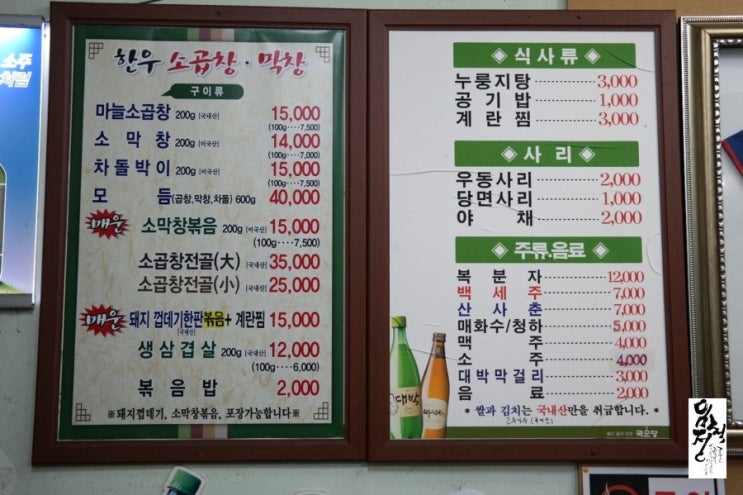 소주
처럼
한우 소곱창·막창
구이류
마늘소곱창 200g [국내산] 15,000
(100g····7,500)
소막창 200g [미국산] 14,000
(100g····7,000)
차돌박이 200g [미국산] 15,000
(100g····7,500)
모듬(곱창,막창,차돌) 600g 40,000
매우 소막창볶음 200g [미국산] 15,000
(100g····7,500)
소곱창전골(大) [국내산] 35,000
소곱창전골(小) [국내산] 25,000
매우 돼지 껍데기한판볶음+계란찜 15,000
[국내산]
생삼겹살 200g [국내산] 12,000
(100g····6,000)
볶음밥 2,000
※돼지껍데기, 소막창볶음, 포장가능합니다※
◈ 식사류 ◈
누룽지탕 3,000
공기밥 1,000
계란찜 3,000
◈ 사리 ◈
우동사리 2,000
당면사리 1,000
야채 2,000
◈ 주류.음료 ◈
복분자 12,000
백세주 7,000
산사춘 7,000
매화수/청하 5,000
맥주 4,000
소주 4,000
대박막걸리 3,000
음료 2,000
* 쌀과 김치는 국내산만을 취급합니다. *
대박
국순당